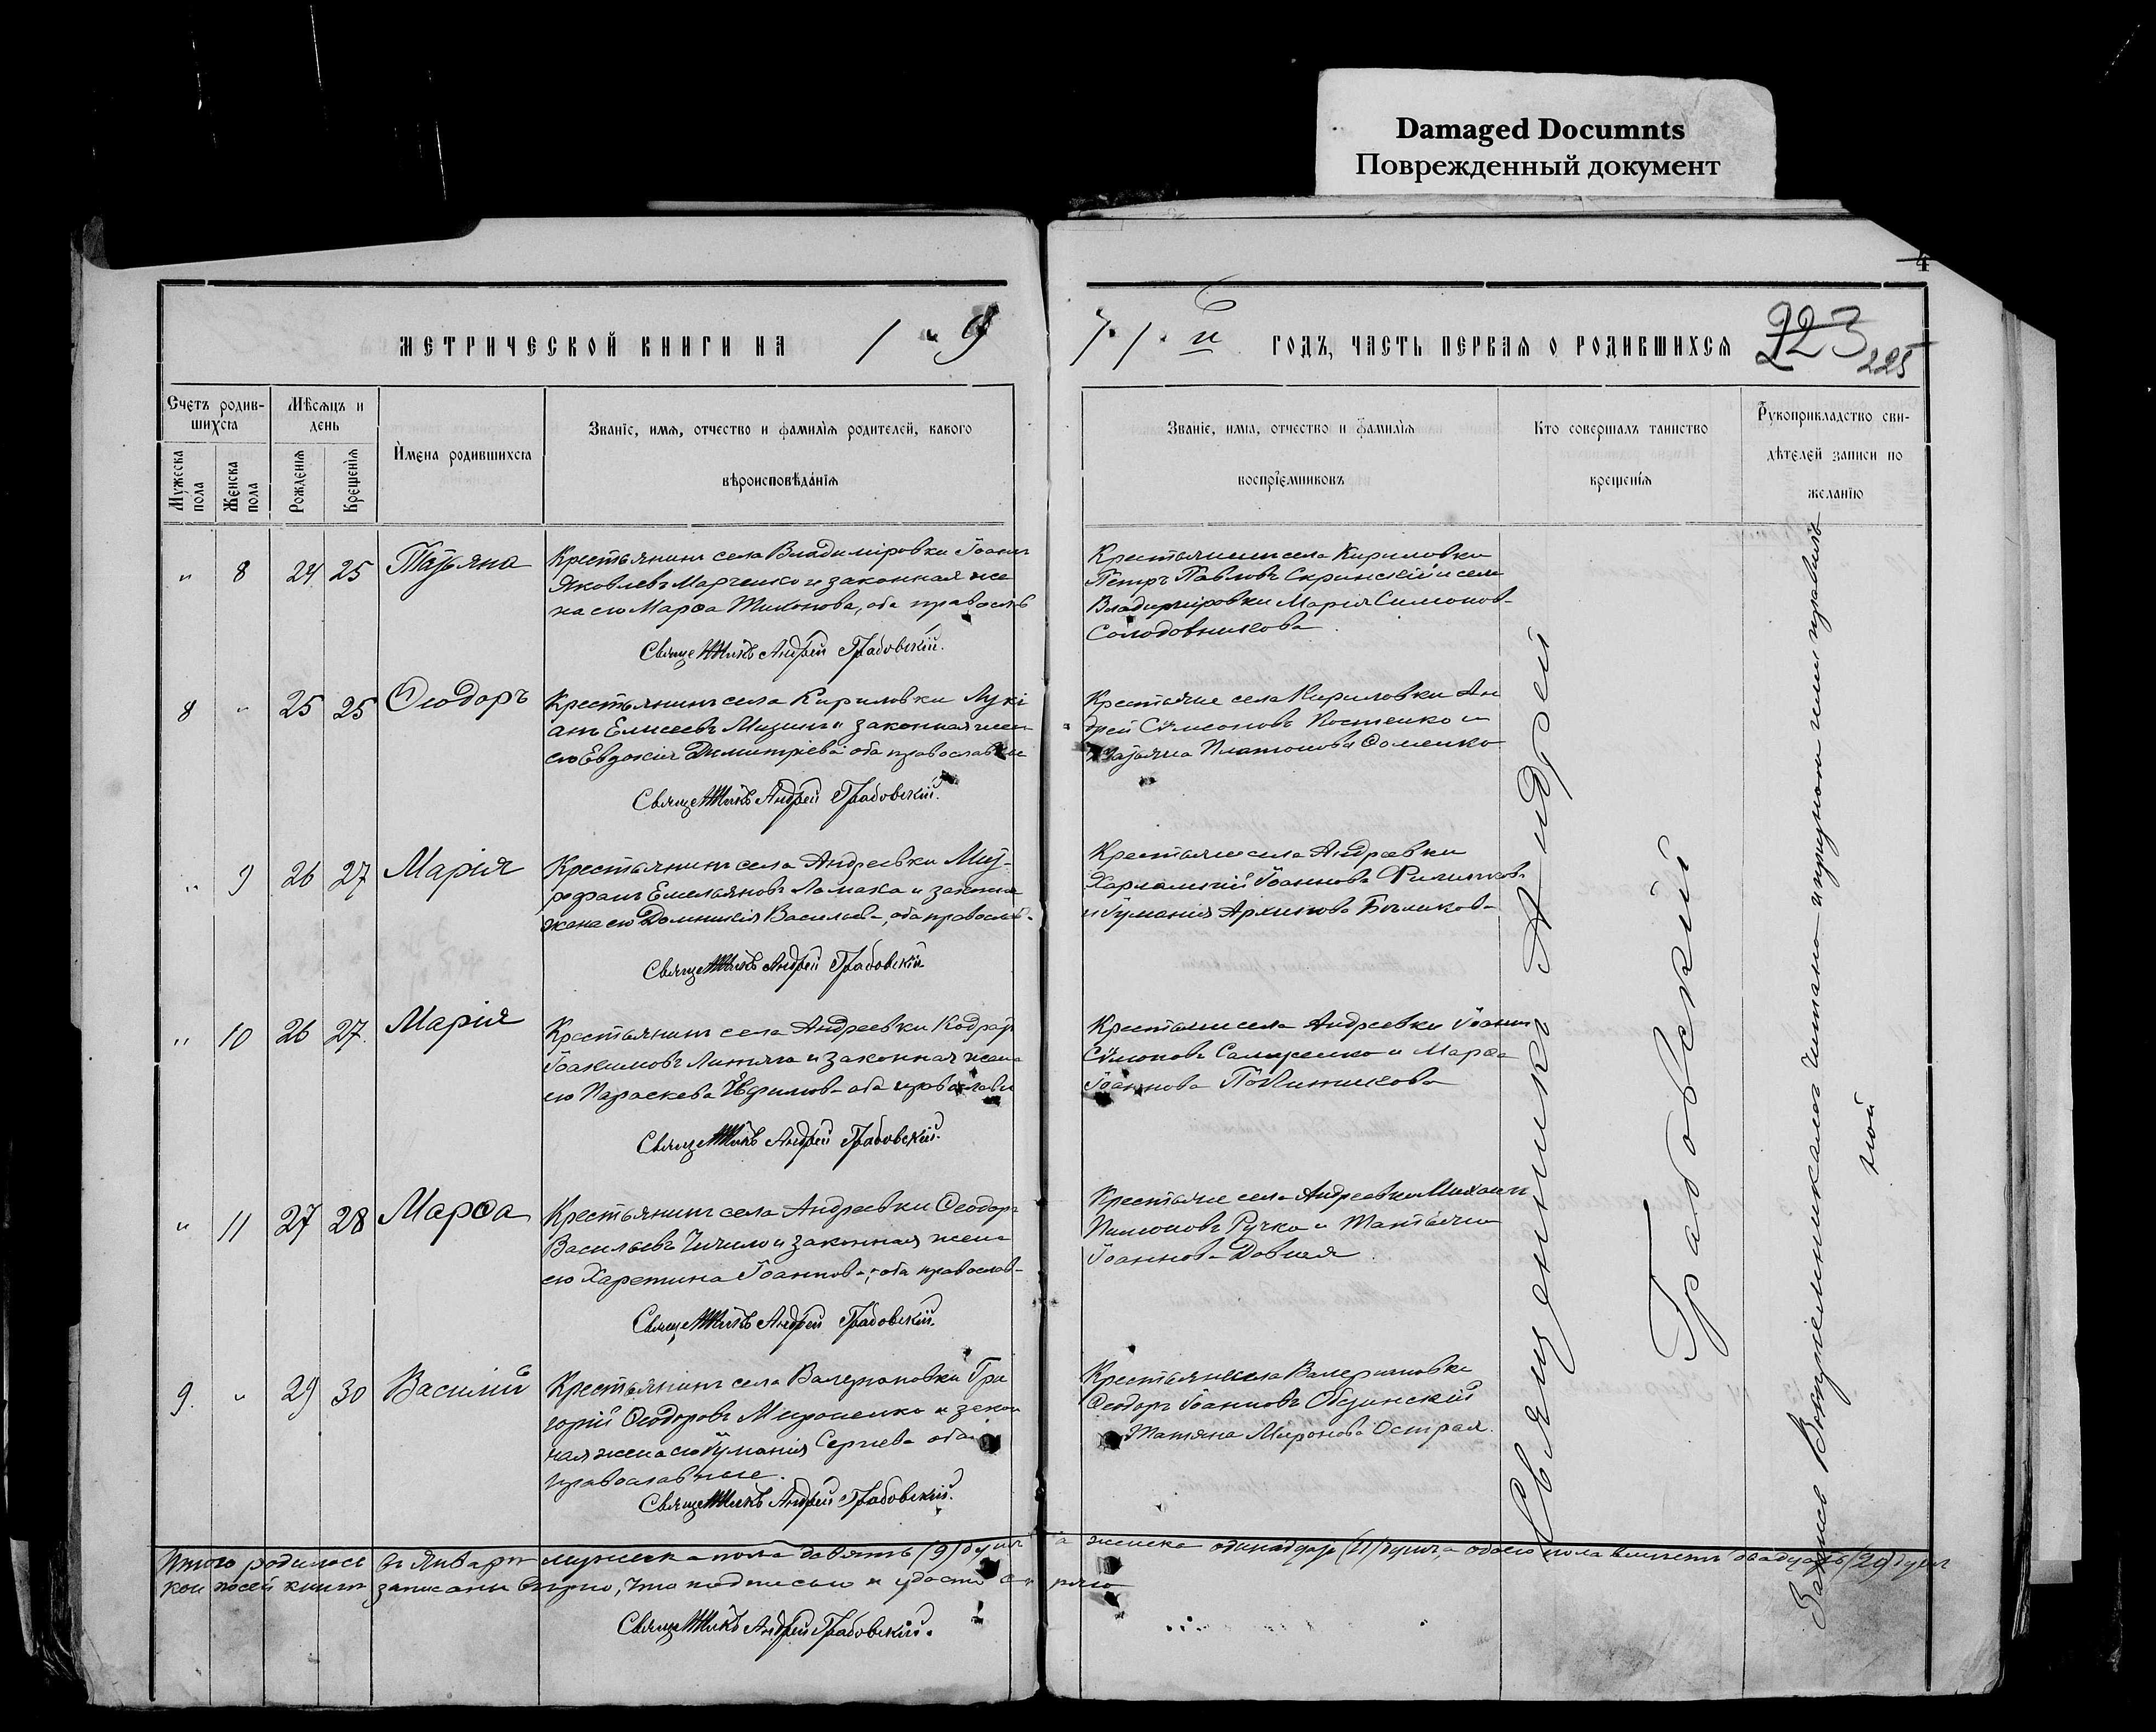 Damaged Documnts
Поврежденный документ
4
МЕТРИЧЕСКОЙ КНИГИ НА 1 9
11 й ГОДЪ, ЧАСТЬ ПЕРВАЯ О РОДИВШИХСЯ 223 225
Счетъ родив-
шихся
Мѣсяцъ и
день
Мужеска
пола
Женска
пола
Рожденія
Крещенія
Имена родившихся
Званіе, имя, отчество и фамилія родителей, какого
вѣроисповѣданія
Званіе, имя, отчество и фамилія
воспріемниковъ
Кто совершалъ таинство
крещенія
Рукоприкладство сви-
дѣтелей записи по
желанію
" 8 24 25 Татьяна
Крестьянинъ села Владиміровки Іоаннъ
Яковлевъ Марченко и законная же
на его Марѳа Тихонова, оба правосл
Священникъ Андрей Грабовскій.
Крестьянинъ села Кириловки
Петръ Павловъ Скринскій и села
Владиміровки Марія Симонов-
Солодовникова
8 " 25 25 Ѳеодоръ
Крестьянинъ села Кириловки Лукі
анъ Елисеевъ Мизинъ и законная жен
его Евдокія Димитріева оба православные
Священникъ Андрей Грабовскій.
Крестьяне села Кириловки Ан
дрей Сѵмеоновъ Костенко и
Татьяна Платонова Соменко
" 9 26 27 Марія
Крестьянинъ села Андреевки Мит-
рофанъ Емельяновъ Ломака и законна
жена его Домникія Васильев-, оба православ-
Священникъ Андрей Грабовскій
Крестьяне села Андреевки
Харлампій Іоанновъ
и Іуманія Архипова
" 10 26 27. Марія
Крестьянинъ села Андреевки Кодрат
Іоакимовъ Линяга и законная жена
его Параскева Ефимов- оба православн
Священникъ Андрей Грабовскій.
Крестьяне села Андреевки Іоаннъ
Сѵмоновъ и Марѳа
Іоаннова
" 11 27 28 Марѳа
Крестьянинъ села Андреевки Ѳеодоръ
Васильевъ и законная жена
его Харетина Іоаннов-, оба православ-
Священникъ Андрей Грабовскій.
Крестьяне села Андреевки Михаилъ
Пимоновъ Ручка и Татьяна
Іоаннов- Довгая
9. " 29 30 Василій
Крестьянинъ села Валеріановки Гри
горій Ѳеодоровъ Мироненко и закон
ная жена его Іуманія Сергіева оба
православные.
Священникъ Андрей Грабовскій.
Крестьяне села Валеріановки
Ѳеодоръ Іоанновъ Обзинскій
Татяна Миронова Острая.
Священникъ Андрей
Грабовскій
Запись Воспріемникамъ Читана и признана ими правиль
ной
Итого родилось въ Январѣ мужеска пола девять (9) душъ а женска одинадцать (11) душъ, а обоего пола вмѣстѣ двадцать (20) душъ
кои по сей книгѣ записаны вѣрно, что подписью и удосто ряю
Священникъ Андрей Грабовскій.